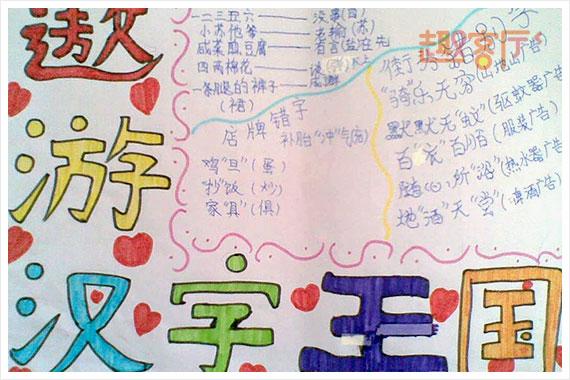 遨
游
汉字王国
一二三五六——没事(四)
小苏他爷——老输(苏)
咸菜煎豆腐——有言(盐)在先
四两棉花——
一条腿的裤子
(裙)
店牌错字
补胎"冲"气(充)
鸡"旦"(蛋)
"抄"饭(炒)
家"具"(俱)
街
"骑"乐无穷(山地车广告)
默默无"蚊"(驱蚊器广告)
百"衣"百顺(服装广告)
随心所"浴"(热水器广告)
地"酒"天"堂"(啤酒广告)
趣客厅